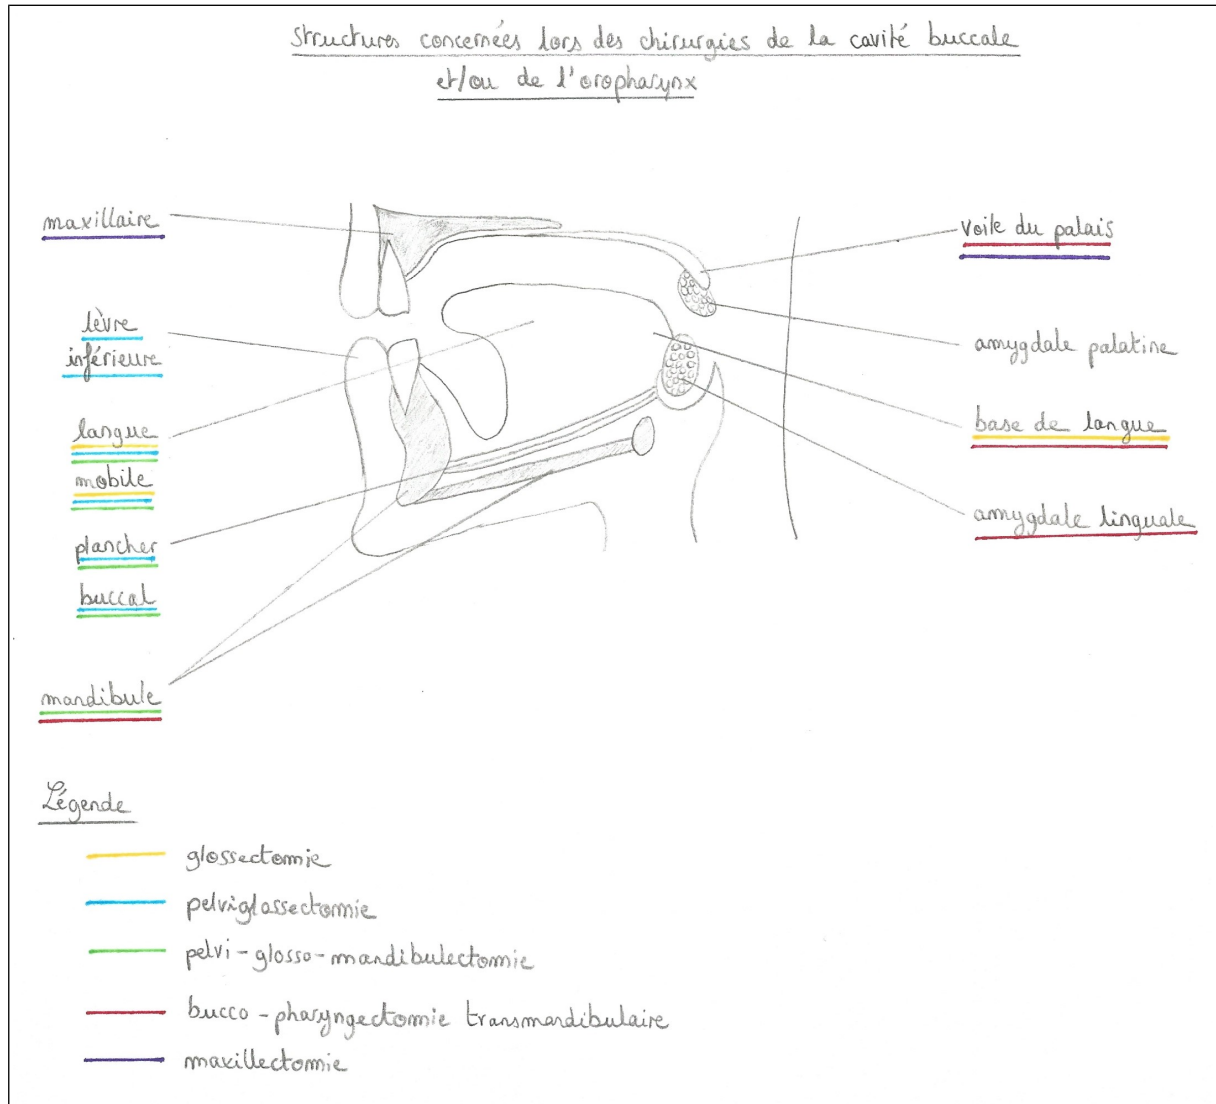 Structures concernées lors des chirurgies de la cavité buccale
et/ou de l'oropharynx
maxillaire
lèvre
inférieure
langue
mobile
plancher
buccal
mandibule
voile du palais
amygdale palatine
base de langue
amygdale linguale
Légende
glossectomie
pelviglossectomie
pelvi-glosso-mandibulectomie
bucco-pharyngectomie transmandibulaire
maxillectomie